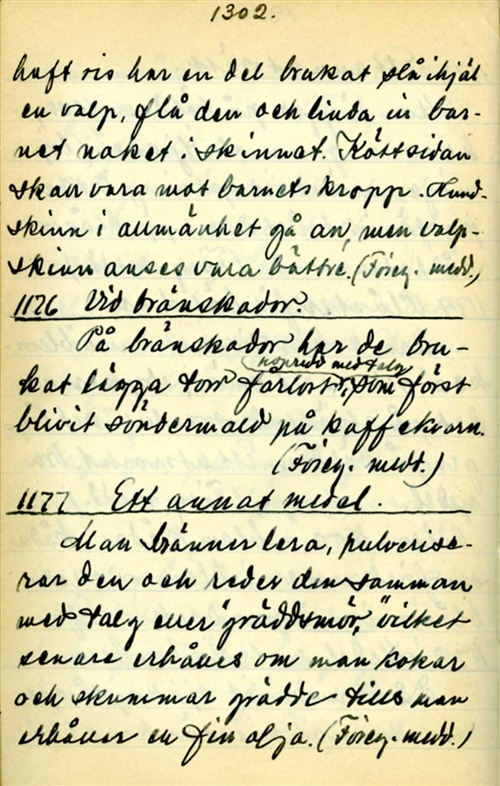 1302.
haft ris har en del brukat slå ihjäl
en valp, flå den och linda in bar-
net naket i skinnet. Köttsidan
skall vara mot barnets kropp. Hund-
skinn i allmänhet gå an, men valp-
skinn anses vara bättre. (Föreg. medd.)
1176 Vid brännskador.
På brännskador har de bru-
kat lägga torr fårlort, som först
(hoprörd med talg)
blivit söndermald på kaffekvarn.
(Föreg. medd.)
1177 Ett annat medel.
Man bränner lera, pulverise-
rar den och reder den samman
med talg eller "gräddsmör," vilket
senare erhålles om man kokar
och skummar grädde tills man
erhåller en fin olja. (Föreg. medd.)